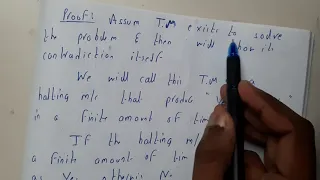 Proof: Assum T.M exists to solve
the problem & then will show it
contradiction itself
We will call this T.M a
halting m/c that produc
in a finite amount of
If the halting m/c
a finite amount of tim
as Yes otherwise No